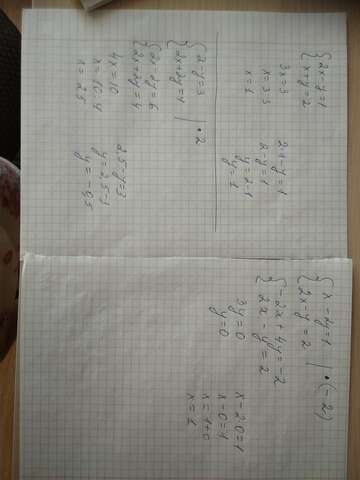 {2x-y=1
{x+y=2
3x=3
x=3:3
x=1
2·1-y=1
2-y=1
y=2-1
y=1
{x-y=3 | ·2
{2x+2y=4
{2x-2y=6
{2x+2y=4
4x=10
x=10:4
x=2,5
2,5-y=3
y=2,5-3
y=-0,5
{x-2y=1 | ·(-2)
{2x-y=2
{-2x+4y=-2
{2x-y=2
3y=0
y=0
x-2·0=1
x-0=1
x=1+0
x=1